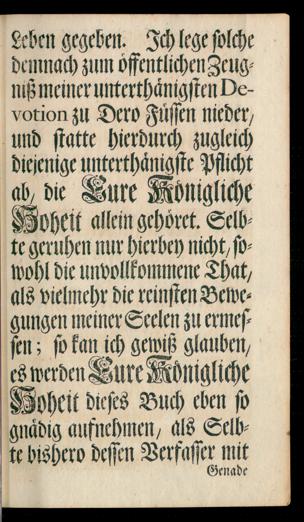 Leben gegeben. Ich lege solche
demnach zum öffentlichen Zeug-
niß meiner unterthänigsten De-
votion zu Dero Füssen nieder,
und statte hierdurch zugleich
diejenige unterthänigste Pflicht
ab, die Eure Königliche
Hoheit allein gehöret. Selb-
te geruhen nur hierbey nicht, so-
wohl die unvollkommene That,
als vielmehr die reinsten Bewe-
gungen meiner Seelen zu ermes-
sen; so kan ich gewiß glauben,
es werden Eure Königliche
Hoheit dieses Buch eben so
gnädig aufnehmen, als Selb-
te bishero dessen Verfasser mit
Genade